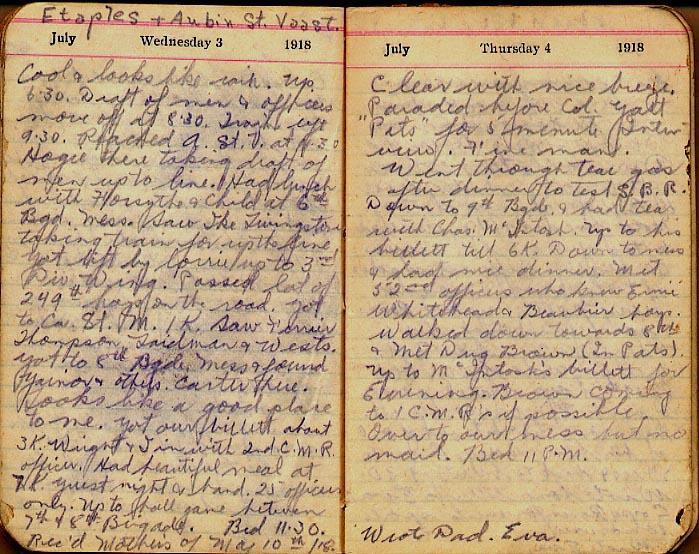 Etaples + Aubin St. Vaast.
July Wednesday 3 1918
Cool & looks like rain. Up
6:30. Draft of men & officers
move off at 8:30. Train left
9.30. Reached A. St. V. at 11.30
Hogie there taking draft of
men up to line. Had lunch
with Forsythe & Child at 6th
Bgd. Mess. Saw The Livingstone
taking train for up the line
Got lift by lorrie up to 3rd
Div. Wing. Passed lot of
249th boys on the road. Got
to Ca. St. M. 1K. Saw
Thompson, & Wests.
Got to 8th Bgde. Mess & found
& others. Carter here.
Looks like a good place
to me. Got our billett about
3K. Wright & I in with 2nd C.M.R.
officer. Had beautiful meal at
7K. guest night & band. 25 officers
only. Up to ball game between
7th & 8th Brigade. Bed 11.30.
Rec'd Mothers of May 10th/18.
July Thursday 4 1918
Clear with nice breeze.
Paraded before Col. Galt
"Pats" for 5 minute inter-
view. Fine man.
Went through tear gas
after dinner to test S.B.R.
Down to 9th Bgde. & had tea
with Chas. McIntosh. Up to his
billett till 6K. Down to mess
& had nice dinner. Met
52nd officers who knew Ernie
Whitehead & boys.
Walked down towards 8th
& Met Doug Brown (In Pats).
Up to McIntosh's billett for
Evening. Brown coming
to 1 C.M.R's if possible.
Over to our mess but no
maid. Bed 11 P.M.
Wrote Dad. Eva.